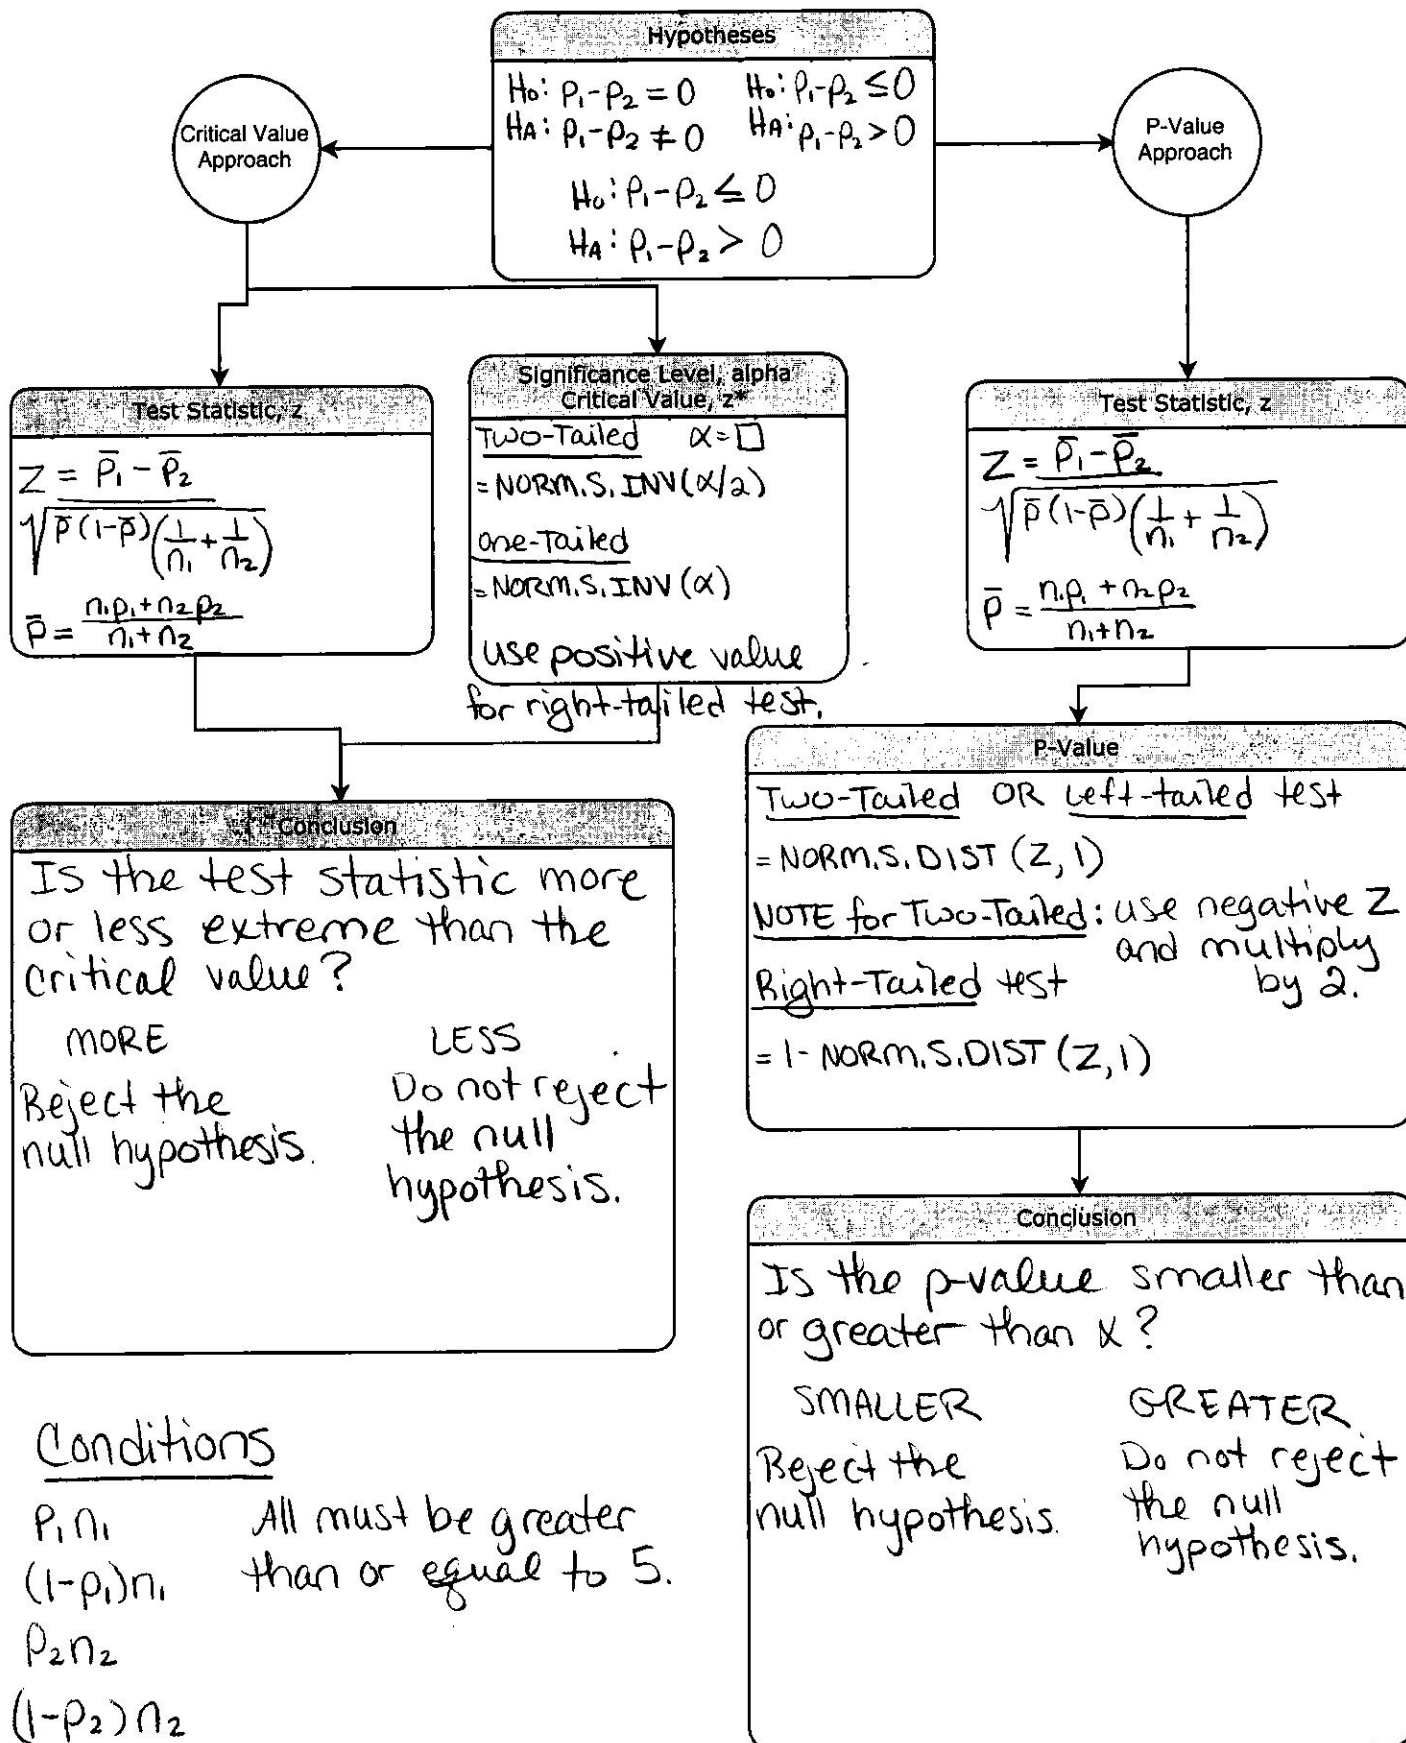 Hypotheses
H₀: p₁-p₂ = 0    H₀: p₁-p₂ ≤ 0
HA: p₁-p₂ ≠ 0    HA: p₁-p₂ > 0
H₀: p₁-p₂ ≤ 0
HA: p₁-p₂ > 0
Critical Value
Approach
P-Value
Approach
Test Statistic, z
Z = p̄₁ - p̄₂
√p̄(1-p̄)(1/n₁ + 1/n₂)
p̄ = n₁p₁+n₂p₂ / n₁+n₂
Significance Level, alpha
Critical Value, z*
Two-Tailed    α=□
=NORM.S.INV(α/2)
one-Tailed
=NORM.S.INV(α)
use positive value
for right-tailed test.
Test Statistic, z
Z = p̄₁-p̄₂
√p̄(1-p̄)(1/n₁ + 1/n₂)
p̄ = n₁p₁ + n₂p₂ / n₁+n₂
Conclusion
Is the test statistic more
or less extreme than the
critical value?
MORE    LESS
Reject the
null hypothesis.
Do not reject
the null
hypothesis.
P-Value
Two-Tailed OR Left-tailed test
=NORM.S.DIST(Z,1)
NOTE for Two-Tailed: use negative Z
and multiply
by 2.
Right-Tailed test
= 1- NORM.S.DIST(Z,1)
Conclusion
Is the p-value smaller than
or greater than α?
SMALLER    GREATER
Reject the
null hypothesis.
Do not reject
the null
hypothesis.
Conditions
p₁n₁    All must be greater
(1-p₁)n₁    than or equal to 5.
p₂n₂
(1-p₂)n₂